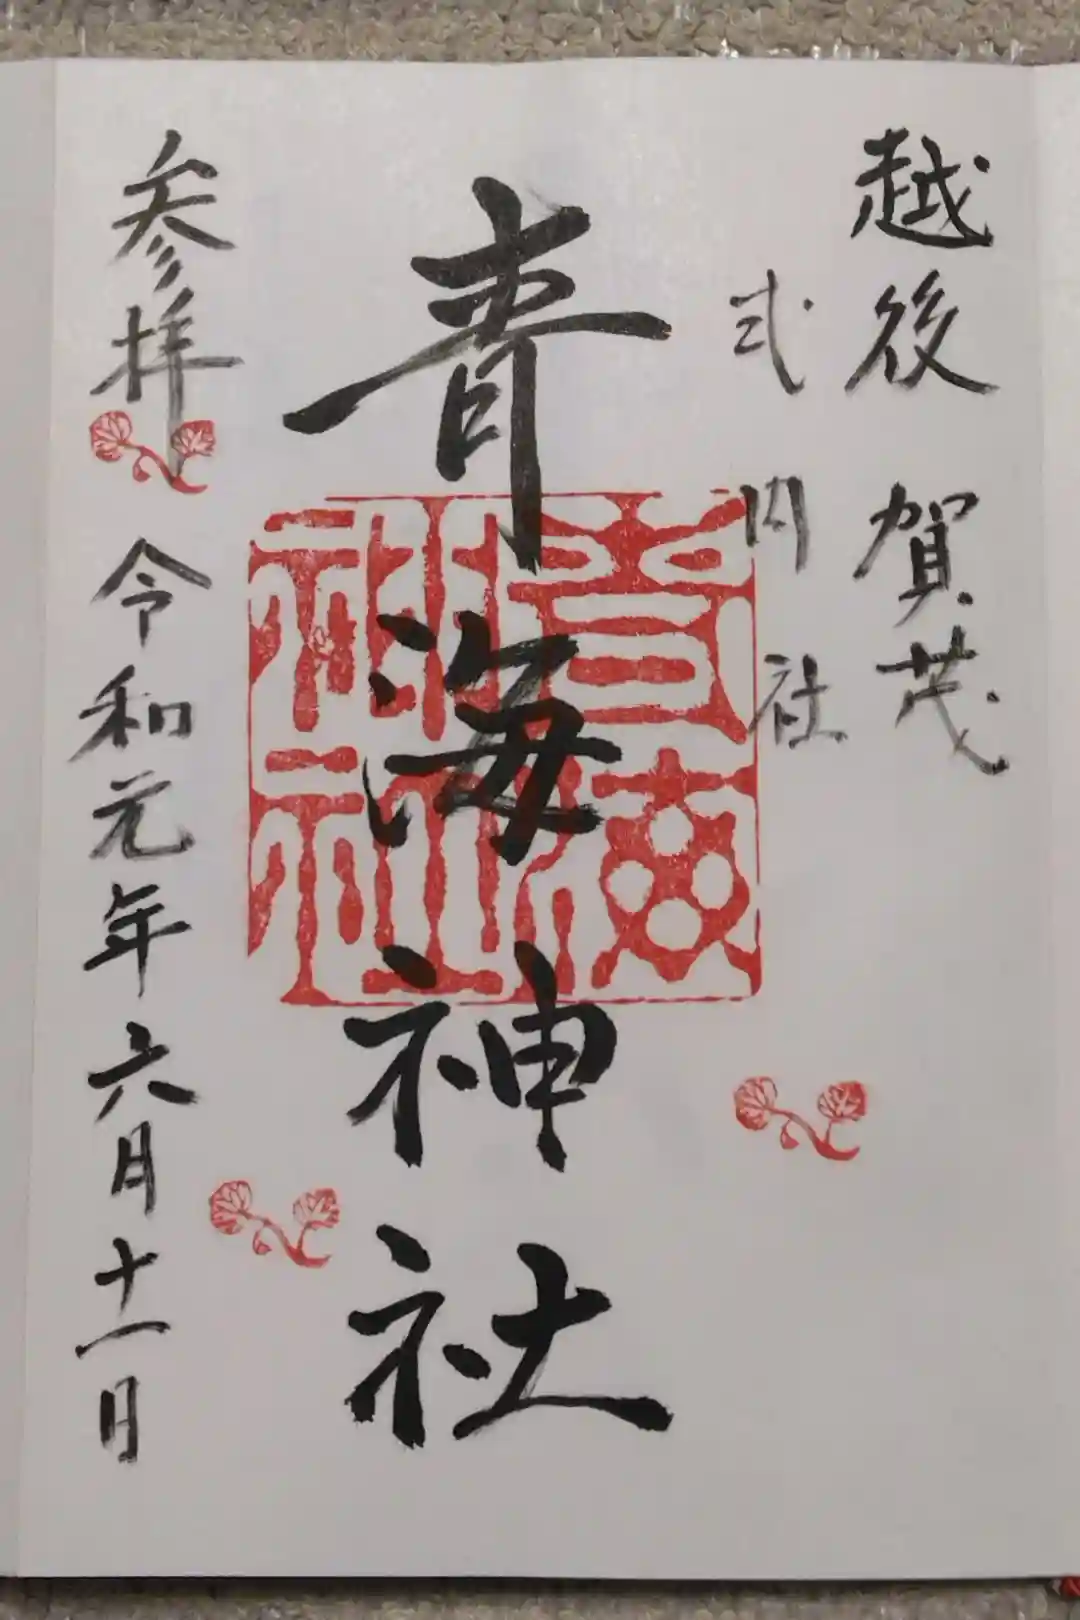 越後賀茂
式内社
青海神社
青海神社
参拝
令和元年六月十一日